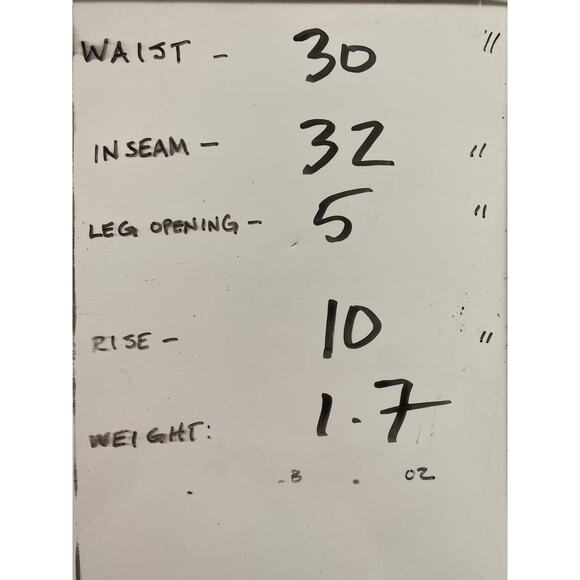 WAIST - 30 "
INSEAM - 32 "
LEG OPENING - 5 "
RISE - 10 "
WEIGHT: 1.7
OZ